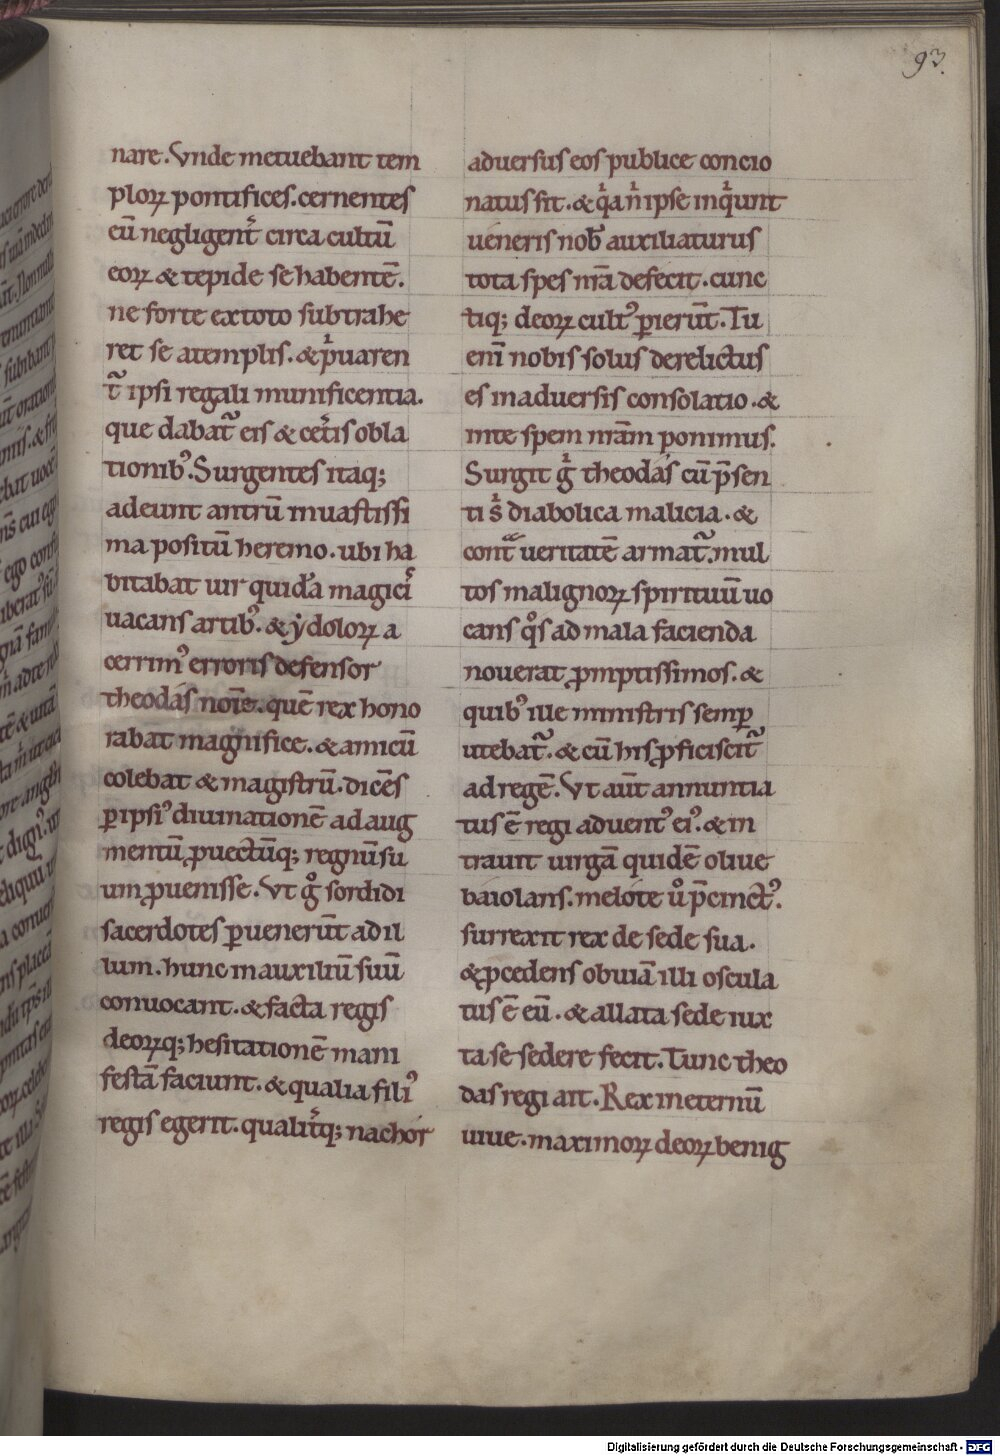 93.
nare. Vnde metuebant tem
ploꝝ pontifices. cernentes
eū negligent̄ circa cultū
eoꝝ & tepide se habentē.
ne forte ex toto subtrahe
ret se a templis. & p̍uaren
t᷑ ipsi regali munificentia.
que dabat᷑ eis & cet̄is obla
tionib᾿. Surgentes itaq;
adeunt antrū in uastissi
ma positū heremo. ubi ha
bitabat uir quidā magicis
uacans artib᾿. & ẏdoloꝝ a
cerrim᾿ erroris defensor
theodas noīe. quē rex hono
rabat magnifice. & amicū
colebat & magistrū. dicēs
ꝑ ipsi᾿ diuinationē ad aug
mentū ꝓuectūq; regnū su
um ꝓuenisse. Vt gͦ sordidi
sacerdotes ꝑuenerūt ad il
lum. hunc in auxiliū suū
conuocant. & facta regis
deoꝝq; hesitationē mani
festā faciunt. & qualia fili᾿
regis egerit. qualit̄q; nachor
aduersus eos publice concio
natus sit. & qͥa nͥ ipse inqͥunt
ueneris nob̄ auxiliaturus
tota spes nr̄a defecit. cunc
tiq; deoꝝ cult᾿ ꝑierūt. Tu
enī nobis solus derelictus
es in aduersis consolatio. &
in te spem nr̄am ponimus.
Surgit gͥ theodas cū p̄sen
ti sͥ diabolica malicia. &
cont̄ ueritatē armat᷑. mul
tos malignoꝝ spirituū uo
cans qͦs ad mala facienda
nouerat ꝓmptissimos. &
quib᾿ ille ministris semꝑ
utebat᷑. & cū his ꝓficiscit᷑
ad regē. Vt aūt annuntia
tus ē regi aduent᾿ ei᾿. & in
trauit uirgā quidē oliue
baiolans. melote uͦ p̄cinct᾿.
surrexit rex de sede sua.
& p̄cedens obuiā illi oscula
tus ē eū. & allata sede iux
ta se sedere fecit. Tunc theo
das regi ait. Rex in eternū
uiue. maximoꝝ deoꝝ benig
Digitalisierung gefördert durch die Deutsche Forschungsgemeinschaft - DFG